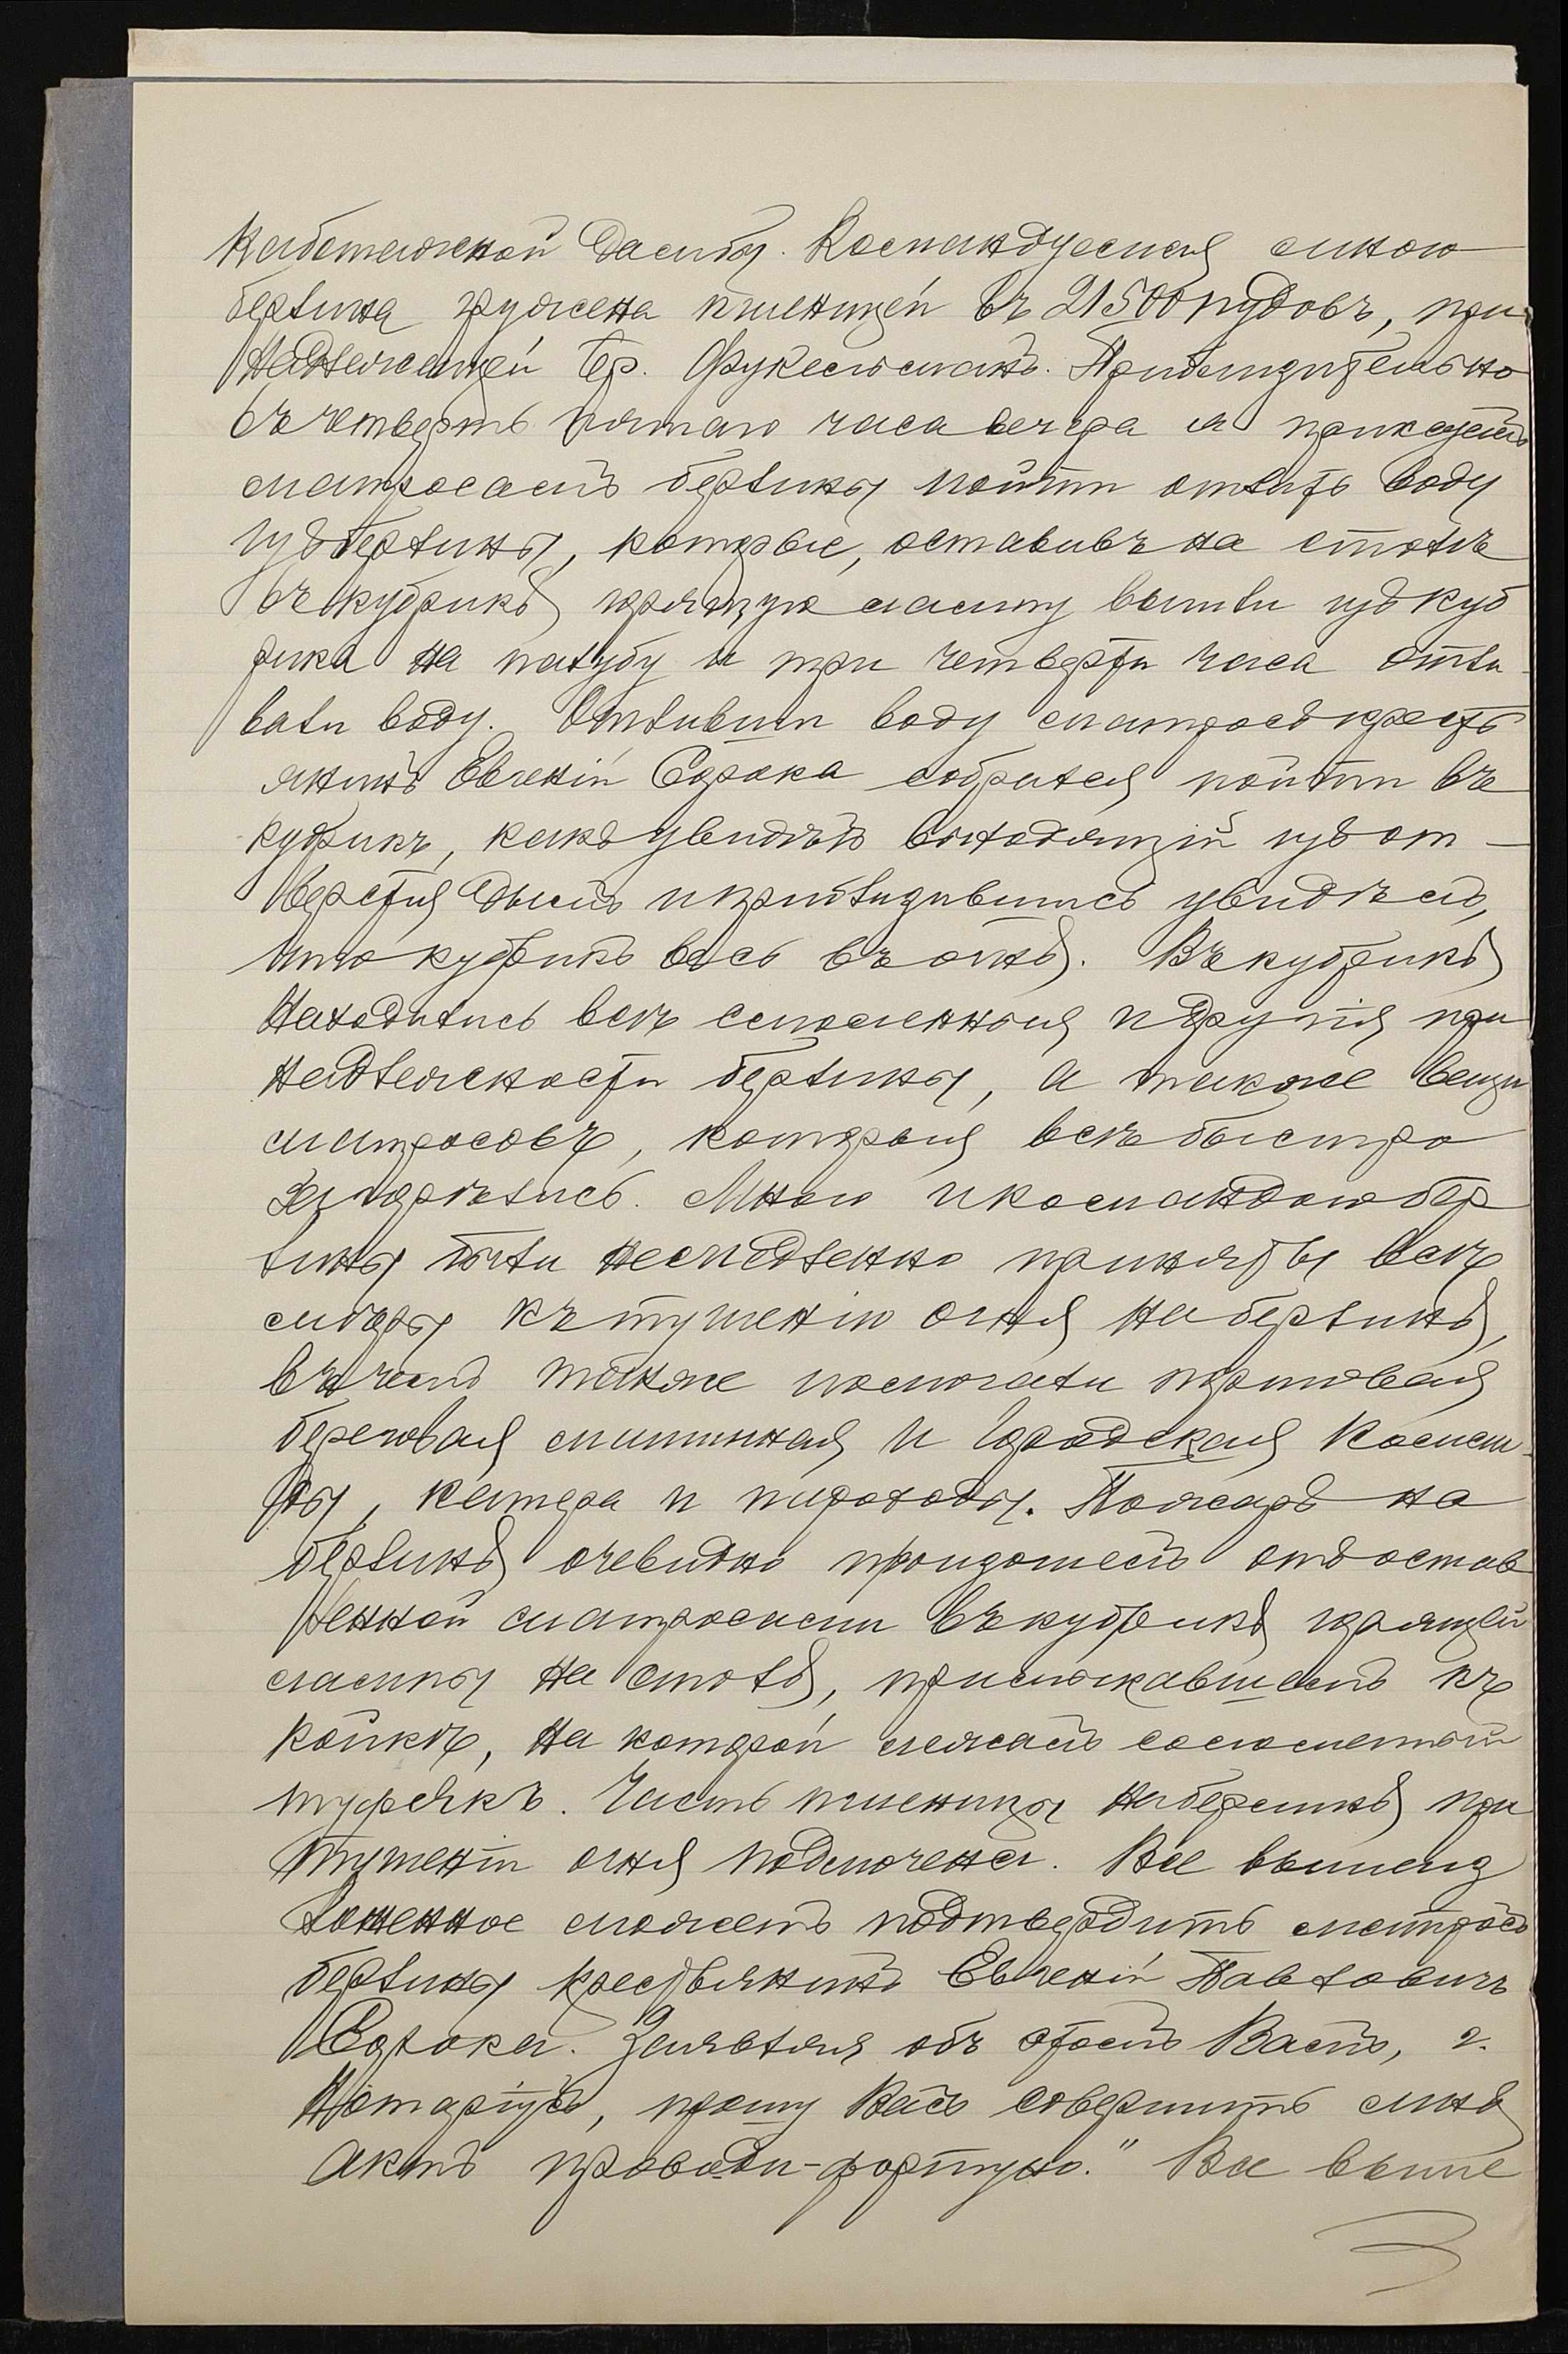 Каботажной Дамбы. Командуемая мною
берлина гружена пшеницей въ 21500 пудовъ, при
надлежащей Бр. Фукельманъ. Приблизительно
въ четверть пятаго часа вечера я приказалъ
матросамъ берлины пойти отлить воду
изъ берлины, которые, оставивъ на столѣ
въ кубрикѣ горящую лампу вышли изъ куб
рика на палубу и три четверти часа отли
вали воду. Отливши воду матросъ кресть
янинъ Евгеній Сорока собрался пойти въ
кубрикъ, какъ увидѣлъ выходящій изъ от-
верстія дымъ и приблизившись увидѣлъ,
что кубрикъ весь въ огнѣ. Въ кубрикѣ
находились всѣ смоленныя и другія при
надлежности берлины, а также вещи
матросовъ, которыя всѣ быстро
загорѣлись. Мною и командою бер
лины были немедленно приняты всѣ
мѣры къ тушенію огня на берлинѣ,
въ чемъ также помогали портовая
береговая машинная и городская коман-
ды, катера и пароходы. Пожаръ на
берлинѣ очевидно произошелъ отъ остав
ленной матросами въ кубрикѣ горящей
лампы на столѣ, примыкавшемъ къ
койкѣ, на которой лежалъ соломенный
туфякъ. Часть пшеницы на берлинѣ при
тушеніи огня подмочена. Все вышеиз
ложенное можетъ подтвердить матросъ
берлины крестьянинъ Евгеній Павловичъ
Сорока. Заявляя объ этомъ Вамъ, г.
Нотаріусъ, прошу Васъ совершить мнѣ
актъ проводи-фортуно." Все выше